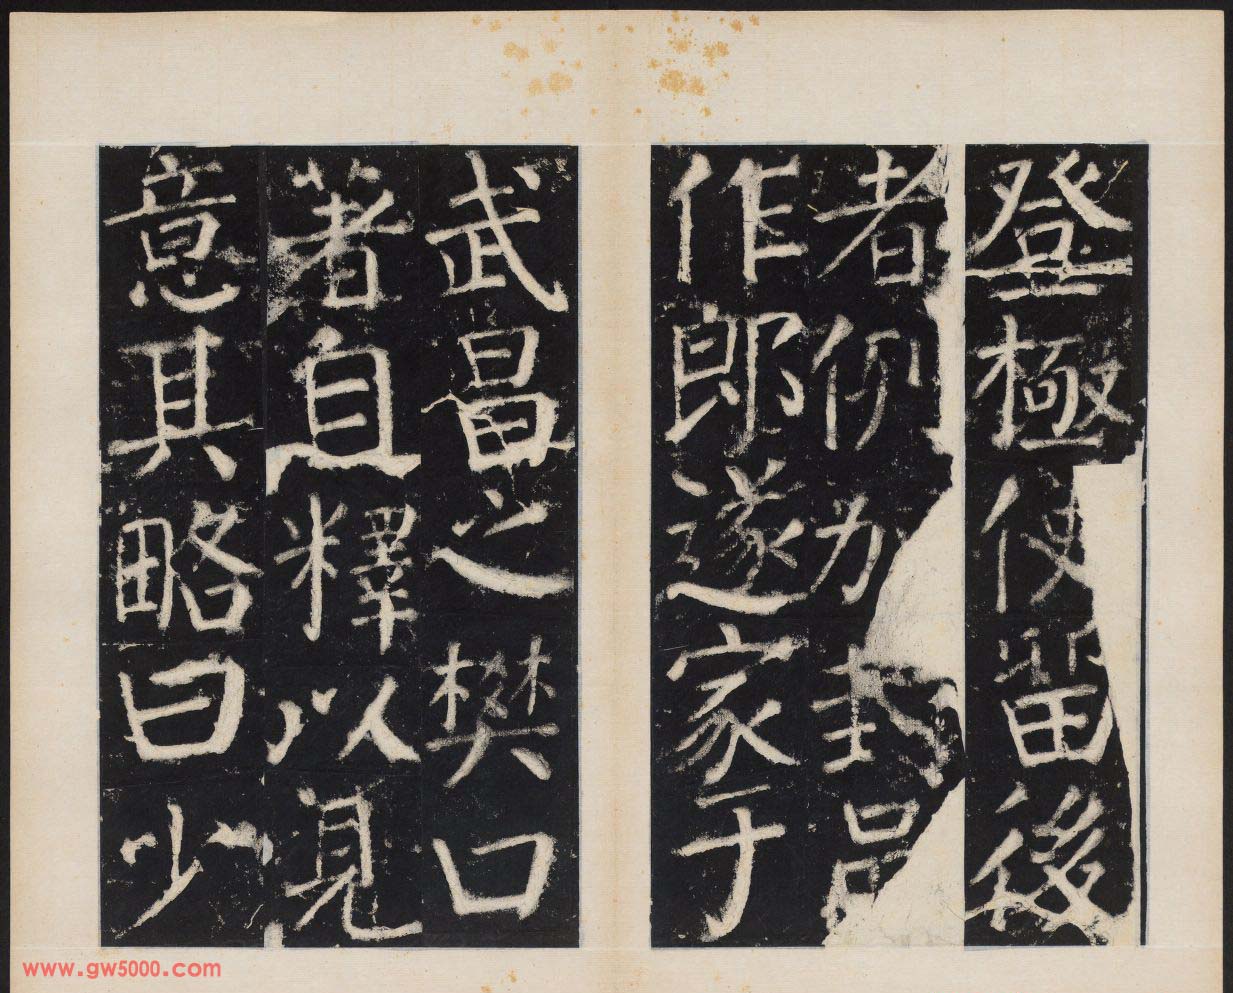 登極使留後
者例加封吕
作郎遂家于
武昌之樊口
著自釋以見
意其略曰少
www.gw5000.com